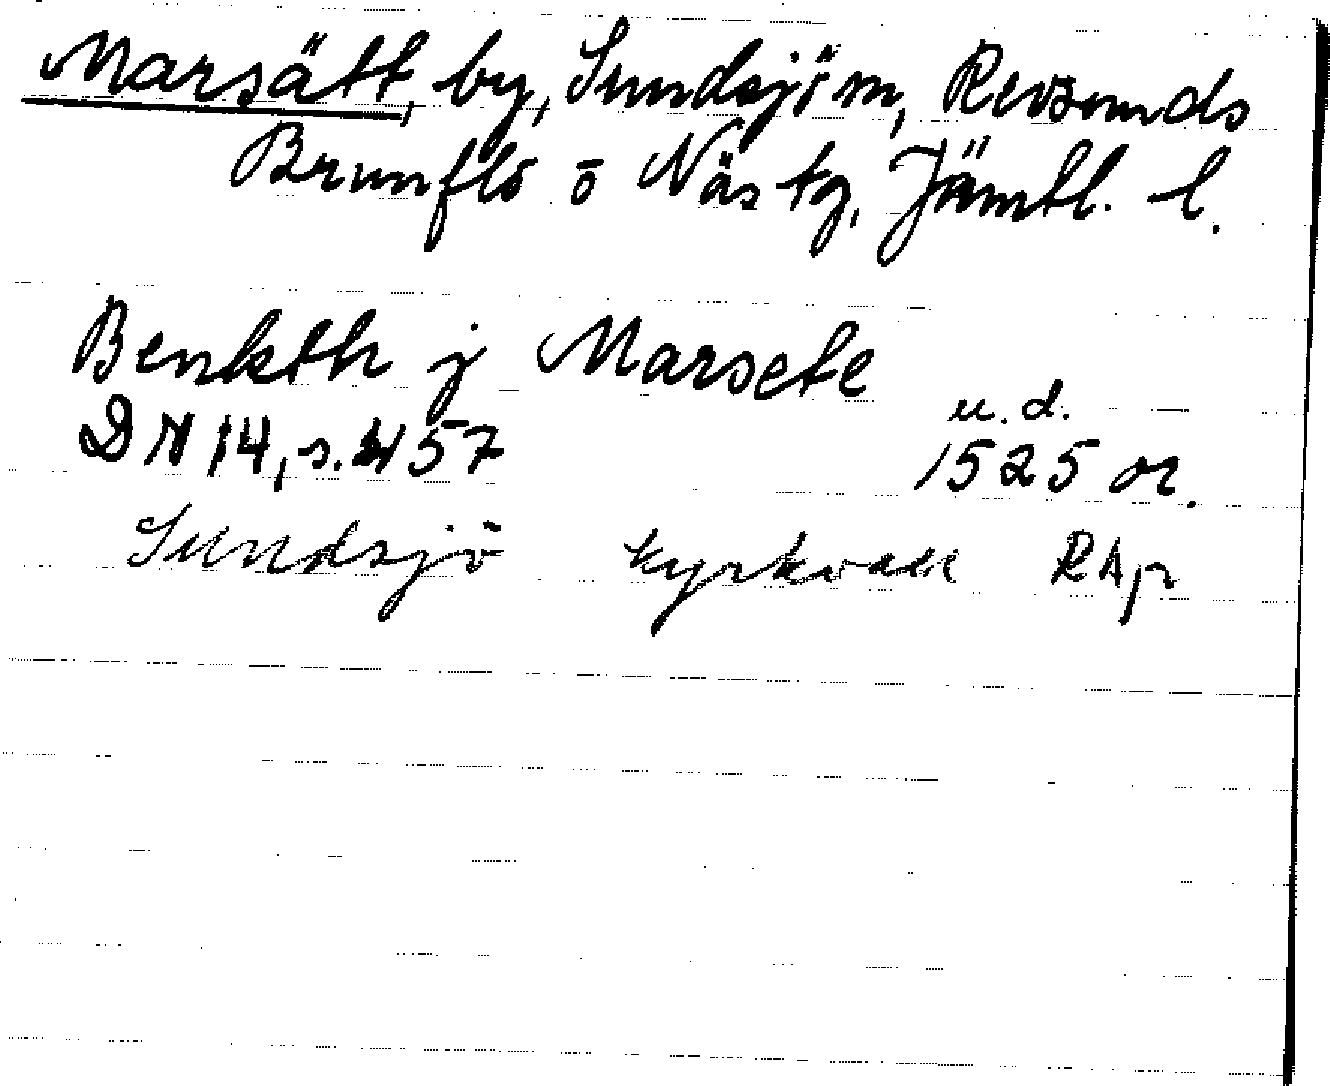 Marsätt, by, Sundsjö sn, Revsunds
Brunflo o Näs tg, Jämtl. l.
Benkth j Marsete
u.d.
DN 14, s. 457 1525 or.
Sundsjö kyrkvall RAp